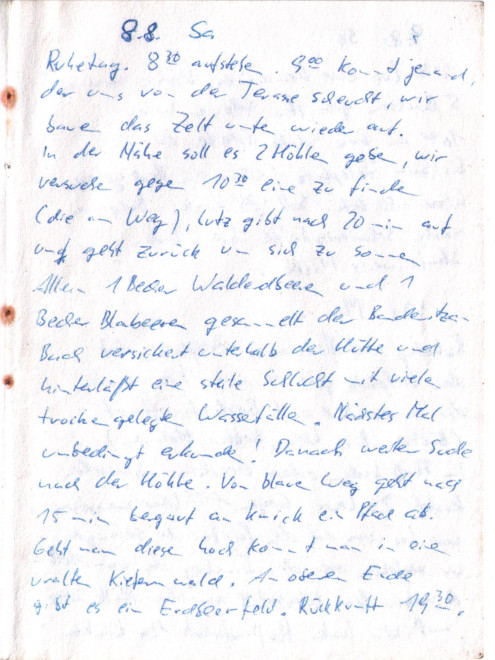 8.8. Sa
Ruhetag. 8³⁰ aufstehen. 9⁰⁰ kommt jemand,
der uns von der Terasse scheucht, wir
bauen das Zelt unten wieder auf.
In der Nähe soll es 2 Höhlen geben, wir
versuchen gegen 10³⁰ eine zu finden
(die am Weg), Lutz gibt nach 20 min auf
und geht zurück um sich zu sonnen
Allein 1 Becher Walderdbeeren und 1
Becher Blaubeeren gesammelt der
Bach versichert unterhalb der Hütte und
hinterläßt eine steile Schlucht mit vielen
trockengelegten Wasserfällen. Nächstes Mal
unbedingt erkunden! Danach weiter Suche
nach der Höhle. Vom blauen Weg geht nach
15 min bergauf am Knick ein Pfad ab.
Geht man diesen hoch kommt man in einen
uralten Kiefernwald. Am oberen Ende
gibt es ein Erdbeerfeld. Rückkunft 19³⁰.